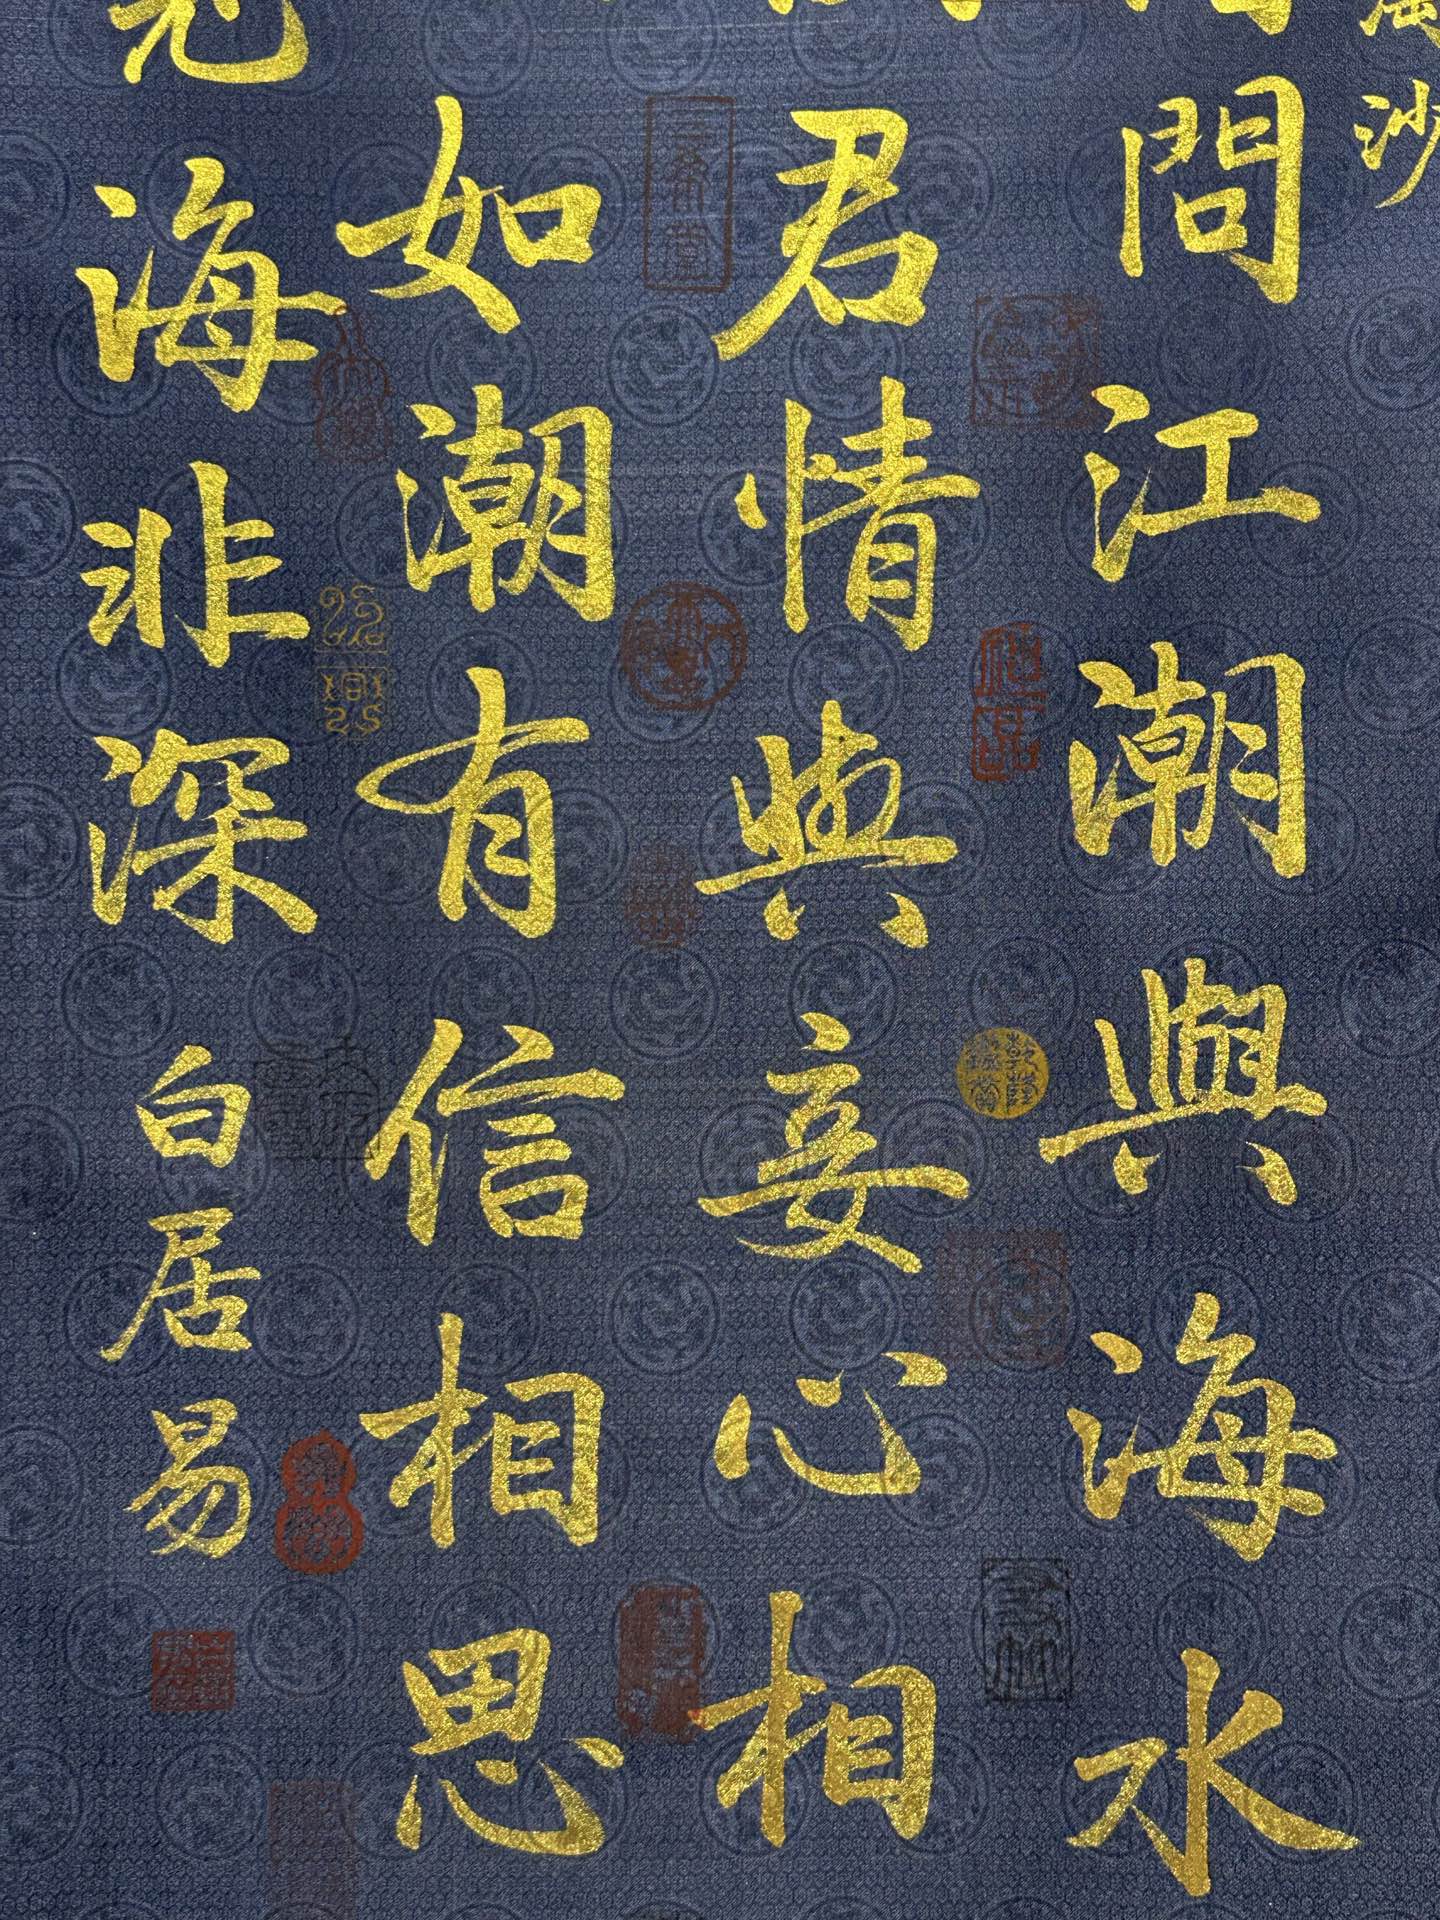 沙
問江潮與海水
君情與妾心相
如潮有信相思
海非深
白居易